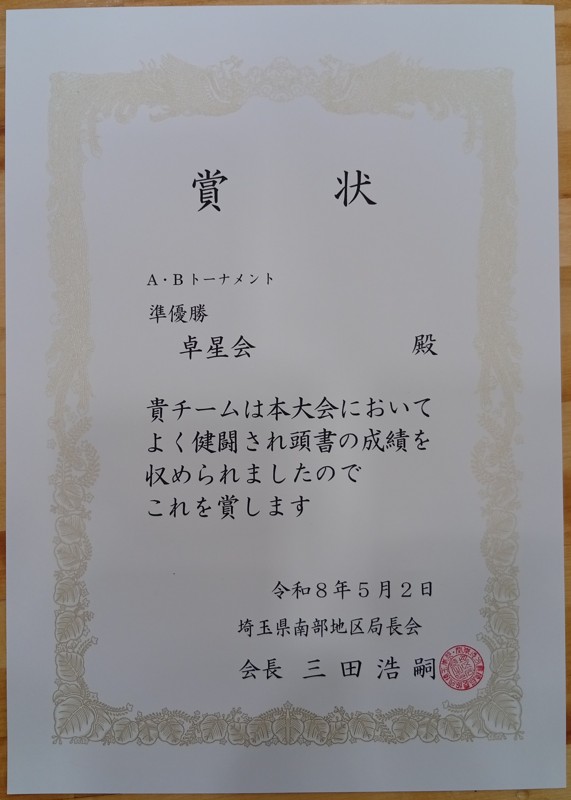 賞 状
A・Bトーナメント
準優勝
卓星会 殿
貴チームは本大会において
よく健闘され頭書の成績を
収められましたので
これを賞します
令和8年5月2日
埼玉県南部地区局長会
会長 三田浩嗣